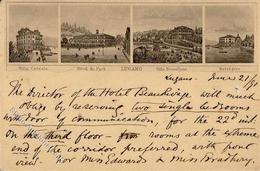 Villa Castelli. Hôtel du Parc. LUGANO Villa Beauséjour. Belvédère.
Lugano, June 21/91
The Director of the Hotel Beaurivage will much
oblige by reserving two single bedrooms
with door of communication, for the 22nd inst.
on the third floor – rooms at the extreme
end of the corridor preferred, with front
view. For Miss Edwards & Miss Bradbury.